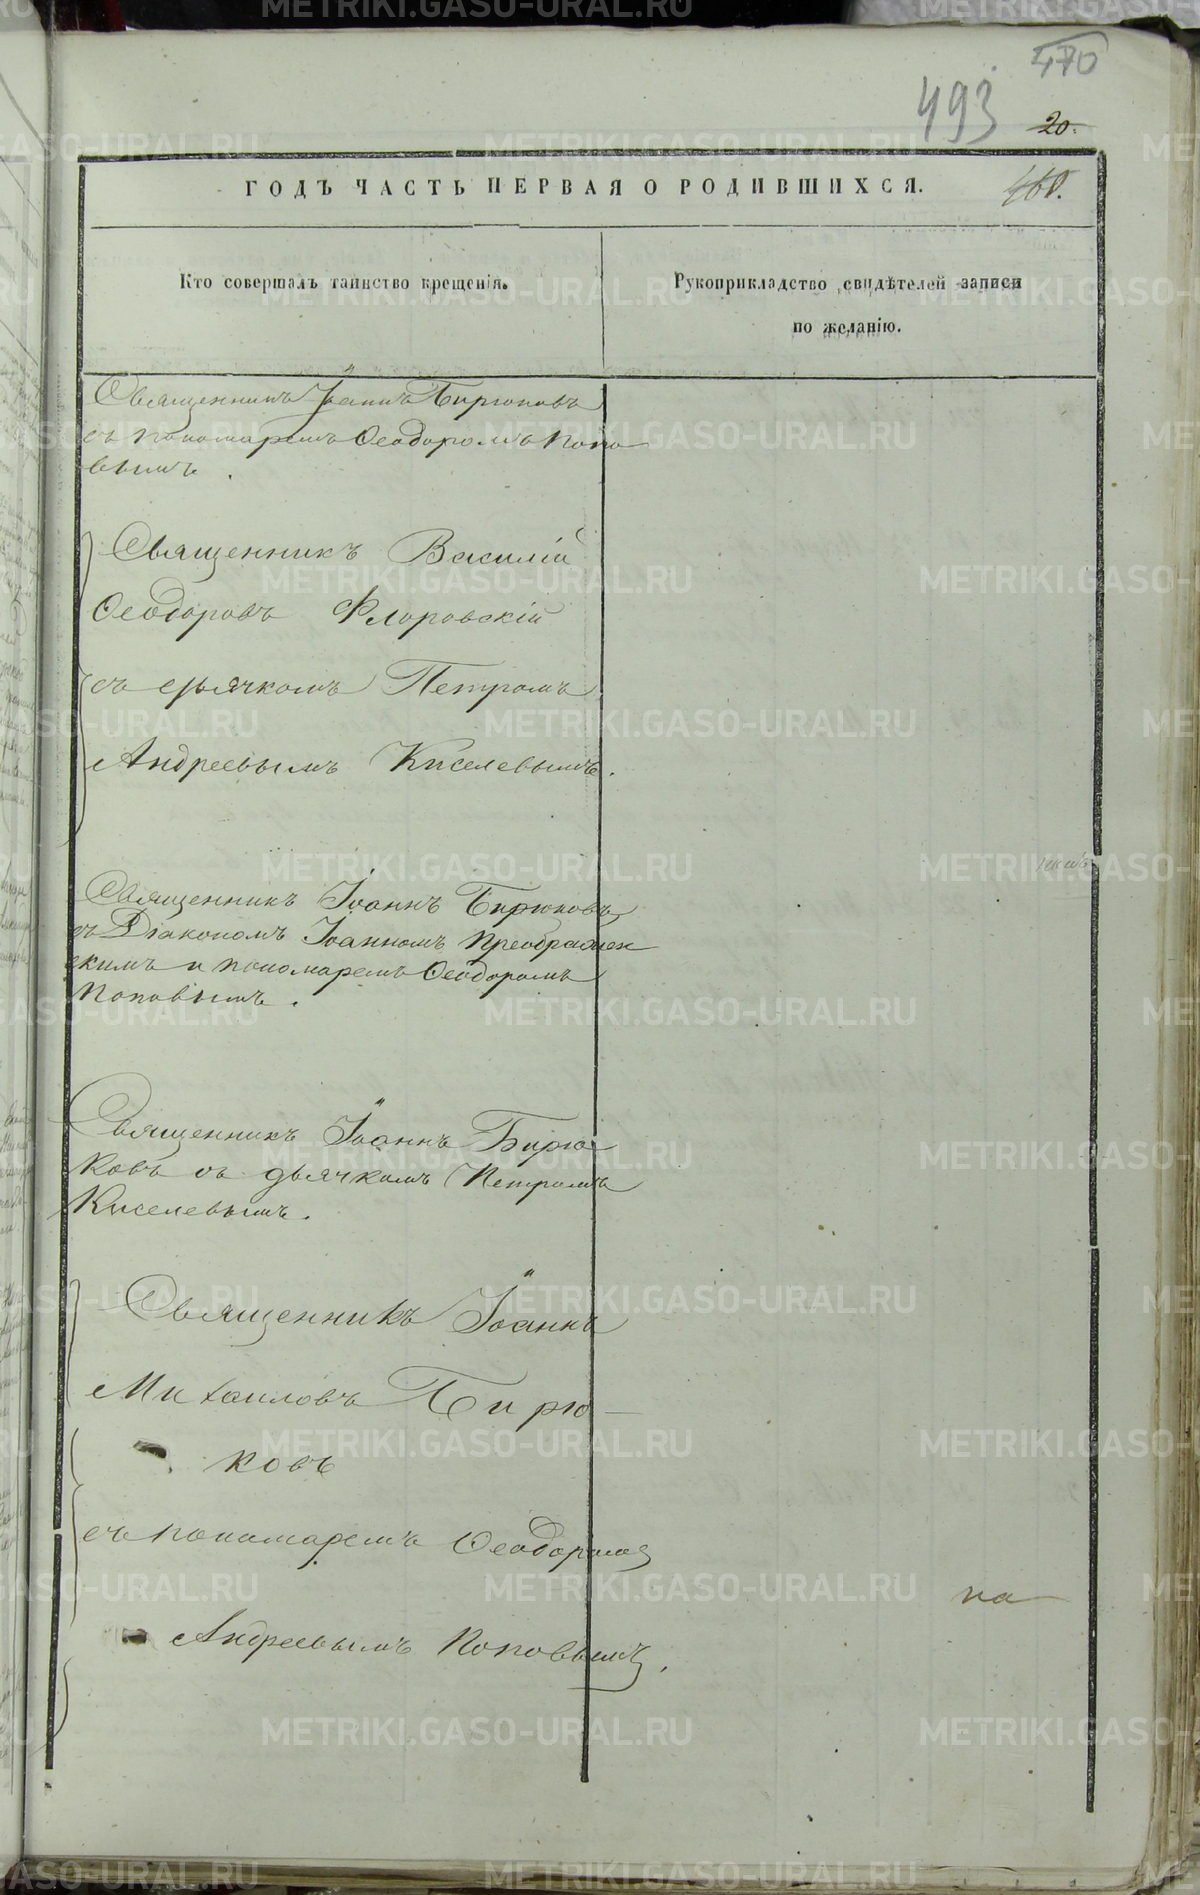 470
493
20.
ГОДЪ ЧАСТЬ ПЕРВАЯ О РОДИВШИХСЯ.
Кто совершалъ таинство крещенія.
Рукоприкладство свидѣтелей записи
по желанію.
Священникъ Іоаннъ Бирюковъ
съ пономаремъ Ѳеодоромъ Попо
вымъ.
Священникъ Василій
Ѳеодоровъ Флоровскій
съ дьячкомъ Петромъ
Андреевымъ Киселевымъ.
Священникъ Іоаннъ Бирюковъ
съ Діакономъ Іоанномъ Преображен
скимъ и пономаремъ Ѳеодоромъ
Поповымъ.
Священникъ Іоаннъ Бирю
ковъ съ дьячкомъ Петромъ
Киселевымъ.
Священникъ Іоаннъ
Михаиловъ Бирю—
ковъ
съ пономаремъ Ѳеодоромъ
на
Андреевымъ Поповымъ.
METRIKI.GASO-URAL.RU